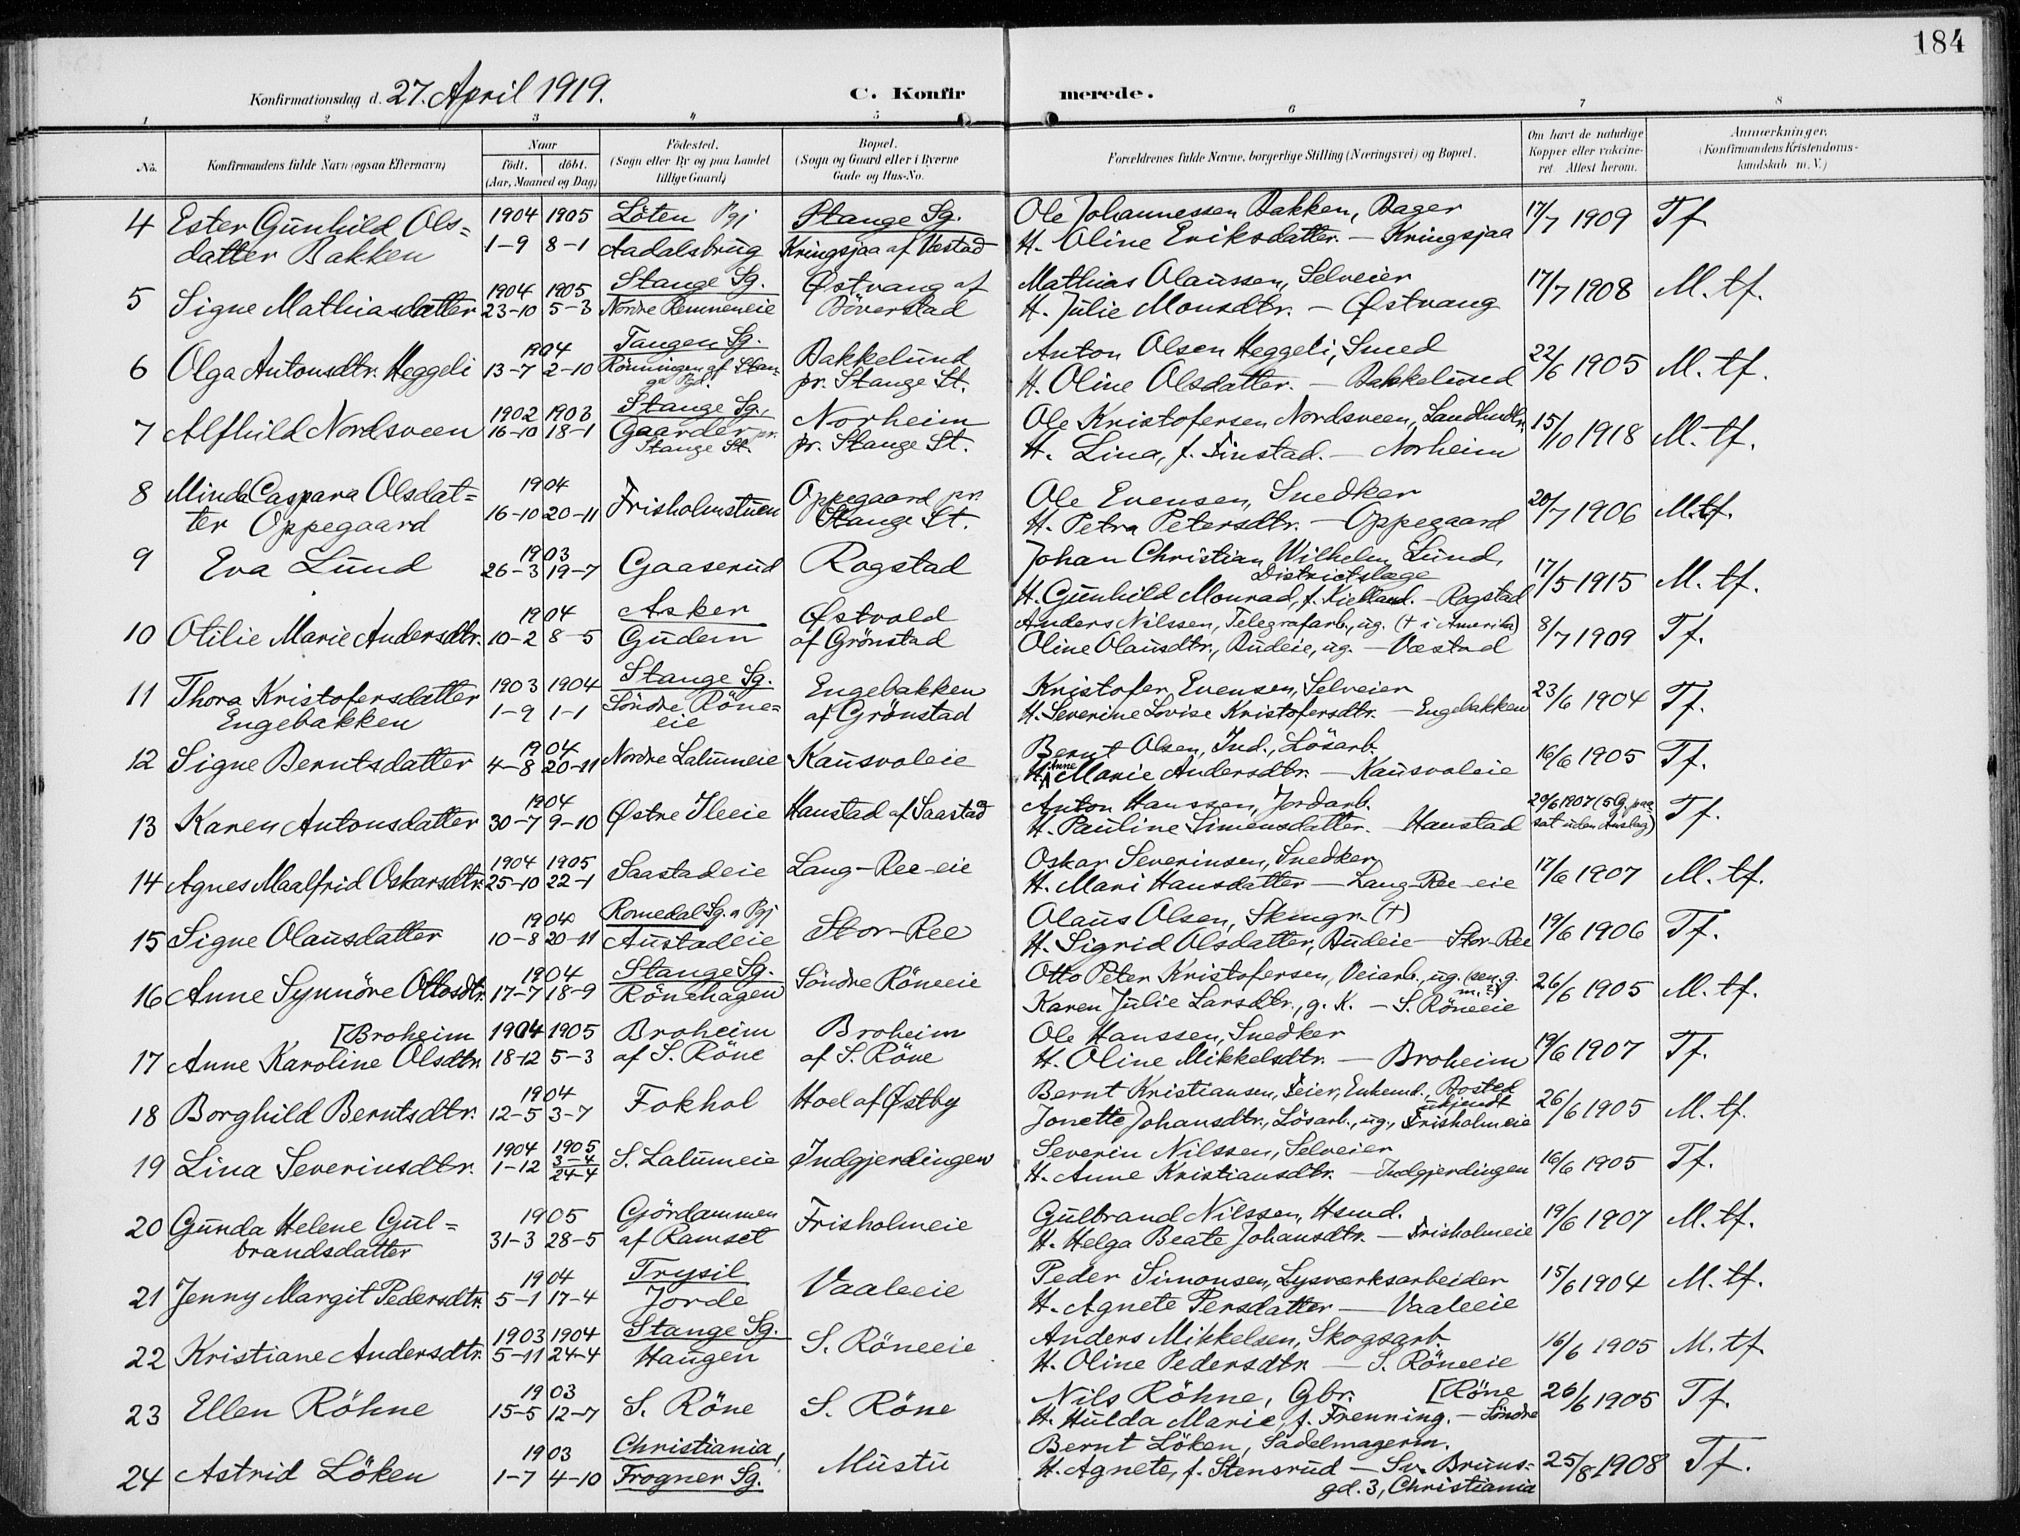 184
Konfirmationsdag d. 27. April 1919. C. Konfir merede.
1 2 3 4 5 6 7 8
No. Konfirmandens fulde Navn (ogsaa Efternavn) Naar født. døbt. (Aar, Maaned og Dag) Fødested. (Sogn eller By og paa Landet tillige Gaard) Bopæl. (Sogn og Gaard eller i Byerne Gade og Hus-No. Forældrenes fulde Navne, borgerlige Stilling (Næringsvei) og Bopæl. Om havt de naturlige Kopper eller vakcineret. Attest herom. Anmærkninger. (Konfirmandens Kristendomskundskab m. V.)
4 Ester Gunhild Ols= 1904 1905 Löten Pgj Stange Sg. Ole Johannessen Bakken, Bager 17/7 1909 Tf.
datter Bakken 1-9 8-1 Aadalsbrug Kringsjaa af Væstad H. Oline Eriksdatter. — Kringsjaa
5 Signe Mathiasdatter 1904 1905 Stange Sg. Østvang af Mathias Olaussen, Selveier 17/7 1908 M. tf.
23-10 5-3 Nordre Remmeneie Böverstad H. Julie Monsdtr. — Østvang
6 Olga Antonsdtr. Heggeli 1904 Tangen Sg. Bakkelund Anton Olsen Heggeli, Smed 22/6 1905 M. tf.
13-7 2-10 Rönningen af Stan- ge Pgd. pr. Stange St. H. Oline Olsdatter. — Bakkelund
7 Alfhild Nordsveen 1902 1903 Stange Sg., Norheim Ole Kristofersen Nordsveen, Landhndlr. 15/10 1918 M. tf.
16-10 18-1 Gaarder pr. Stange St. pr. Stange St. H. Lina, f. Finstad. — Norheim
8 Minda Caspara Olsdat= 1904 Frisholmstuen Oppegaard pr. Ole Evensen, Snedker 20/7 1906 M.tf.
ter Oppegaard 16-10 20-11 Stange St. H. Petra Petersdtr. — Oppegaard
9 Eva Lund 1903 Gaaserud Rogstad Johan Christian Wilhelm Lund, Districtslæge 17/5 1915 M. tf.
26-3 19-7 H. Gunhild Monrad, f. Kielland. — Rogstad
10 Otilie Marie Andersdtr. 1904 Asker Østvold Anders Nilssen, Telegrafarb., ug. († i Amerika) 8/7 1909 Tf.
10-2 8-5 Gudem af Grönstad Oline Olausdtr., Budeie, ug. — Væstad
11 Thora Kristofersdatter 1903 1904 Stange Sg. Engebakken Kristofer Evensen, Selveier 23/6 1904 Tf.
Engebakken 1-9 1-1 Söndre Röne= eie af Grönstad H. Severine Lovise Kristofersdtr. — Engebakken
12 Signe Berntsdatter 1904 Nordre Lalumeie Kausvoleie Bernt Olsen, Ind., Lösarb. 16/6 1905 Tf.
4-8 20-11 H. Anne Marie Andersdtr. — Kausvoleie
13 Karen Antonsdatter 1904 Østre Ileeie Hanstad af Saastad Anton Hanssen, Jordarb. 20/6 1907 (5 G. paa- Tf.
30-7 9-10 H. Pauline Simensdatter. — Hanstad sat uden Anslag)
14 Agnes Maalfrid Oskarsdtr. 1904 1905 Saastadeie Lang-Ree-eie Oskar Severinsen, Snedker 17/6 1907 M. tf.
25-10 22-1 H. Mari Hansdatter — Lang-Ree-eie
15 Signe Olausdatter 1904 Romedal Sg. o Pgj Stor-Ree Olaus Olsen, Skmgr. (†) 19/6 1906 Tf.
10-8 20-11 Austadeie H. Sigrid Olsdatter, Budeie — Stor-Ree
16 Anne Synnöve Ottosdtr. 1904 Stange Sg. Söndre Röneeie Otto Peter Kristofersen, Veiarb., ug. (sen. g. m. ) 26/6 1905 M. tf.
17-7 18-9 Rönehagen Karen Julie Larsdtr., g. K. — S. Röneeie
[Broheim 1904 1905 Broheim Broheim Ole Hanssen, Snedker 19/6 1907 Tf.
17 Anne Karoline Olsdtr. 18-12 5-3 af S. Röne af S. Röne H. Oline Mikkelsdtr. — Broheim
18 Borghild Berntsdtr. 1904 Fokhol Hoel af Østby Bernt Kristiansen, Feier, Enkemd., Bosted ukjendt 26/6 1905 M. tf.
12-5 3-7 Jonette Johansdtr., Lösarb., ug., Frisholmeie
19 Lina Severinsdtr. 1904 1905 S. Lalumeie Indgjerdingen Severin Nilssen, Selveier 16/6 1905 Tf.
1-12 3-4 24-4 H. Anne Kristiansdtr. — Indgjerdingen
20 Gunda Helene Gul= 1905 Gjördammen Frisholmeie Gulbrand Nilssen, Hsmd. 19/6 1907 M. tf.
brandsdatter 31-3 28-5 af Ramset H. Helga Beate Johansdtr. — Frisholmeie
21 Jenny Margit Pedersdtr. 1904 Trysil Vaaleeie Peder Simonsen, Lysværksarbeider 15/6 1904 M. tf.
5-1 17-4 Jorde H. Agnete Persdatter — Vaaleeie
22 Kristiane Andersdtr. 1903 1904 Stange Sg. S. Röneeie Anders Mikkelsen, Skogsarb. 16/6 1905 M. tf.
5-11 24-4 Haugen H. Oline Pedersdtr. — S. Röneeie
23 Ellen Röhne 1903 S. Röne S. Röne Nils Röhne, Gbr. [Röne 26/6 1905 Tf.
15-5 12-7 H. Hulda Marie, f. Frenning. — Söndre
24 Astrid Löken 1903 Christiania, Mustu Bernt Löken, Sadelmagerm. 25/8 1908 Tf.
1-7 4-10 Frogner Sg. H. Agnete, f. Stensrud — Sv. Bruns=
gd. 3, Christiania